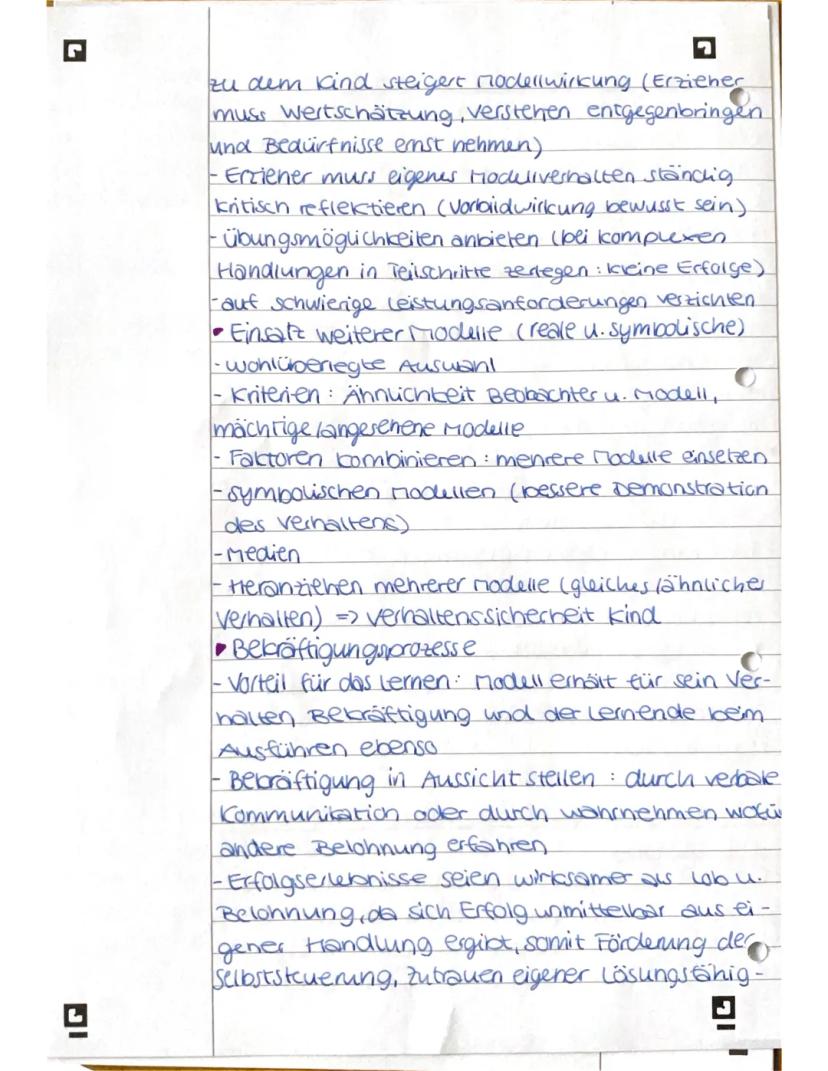 zu dem Kind steigert Modellwirkung (Erzieher
muss Wertschätzung, verstehen entgegenbringen
und Bedürfnisse ernst nehmen)
- Erzieher muss eigenes Modellverhalten ständig
kritisch reflektieren (Vorbildwirkung bewusst sein)
- Übungsmöglichkeiten anbieten (bei komplexen
Handlungen in Teilschritte zerlegen: kleine Erfolge)
- auf schwierige Leistungsanforderungen verzichten
• Einsatz weiterer Modelle (reale u. symbolische)
- wohlüberlegte Auswahl
- Kriterien: Ähnlichkeit Beobachter u. Modell,
mächtige/angesehene Modelle
- Faktoren kombinieren: mehrere Modelle einsetzen
- symbolischen Modellen (bessere Demonstration
des Verhaltens)
- Medien
- Heranziehen mehrerer Modelle (gleiches/ähnliches
Verhalten) => Verhaltenssicherheit Kind
• Bekräftigungsprozesse
- Vorteil für das Lernen: Modell erhält für sein Ver-
halten Bekräftigung und der Lernende beim
Ausführen ebenso
- Bekräftigung in Aussicht stellen: durch verbale
Kommunikation oder durch wahrnehmen wofü
andere Belohnung erfahren
- Erfolgserlebnisse seien wirksamer als Lob u.
Belohnung, da sich Erfolg unmittelbar aus ei-
gener Handlung ergibt, somit Förderung der
Selbststeuerung, Zutrauen eigener Lösungsfähig-